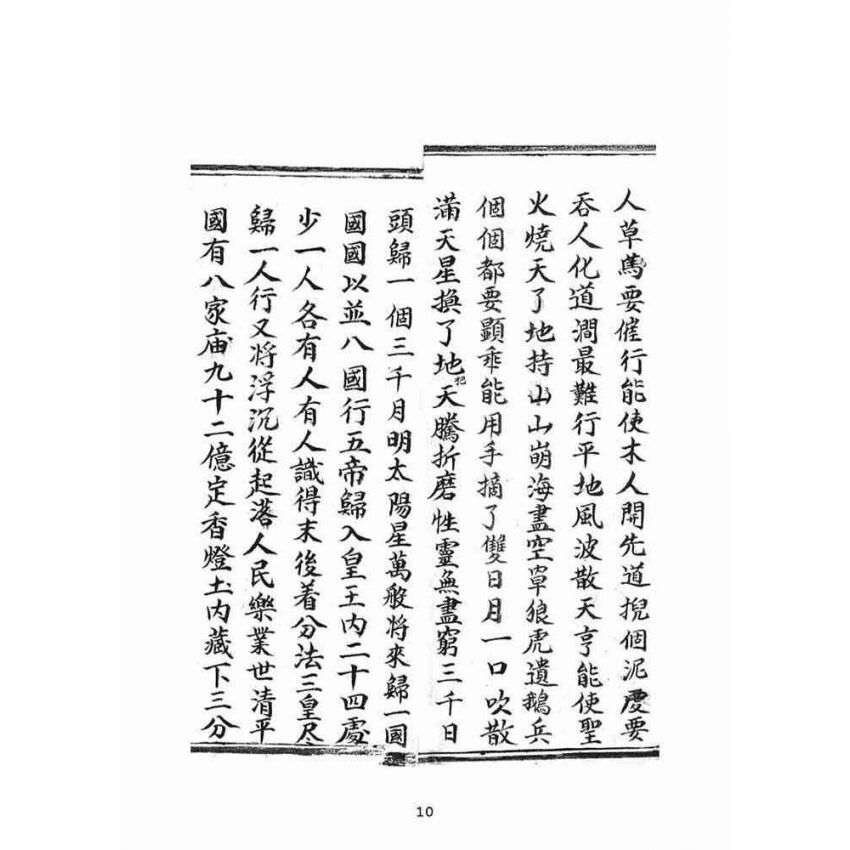 人草馬要催行能使木人開先道捏個泥慶要
吞人化道澗最難行平地風波散天亨能使聖
火燒天了地持山山崩海盡空罩狼虎遺鵝兵
個個都要顯乖能用手摘了雙日月一口吹散
滿天星換了地犯天騰折磨性靈無盡窮三千日
頭歸一個三千月明太陽星萬般將來歸一國
國國以並八國行五帝歸入皇王內二十四處
少一人各有人有人識得末後着分法三皇尽
歸一人行又將浮沉從起落人民樂業世清平
國有八家庙九十二億定香燈土內藏下三分
10